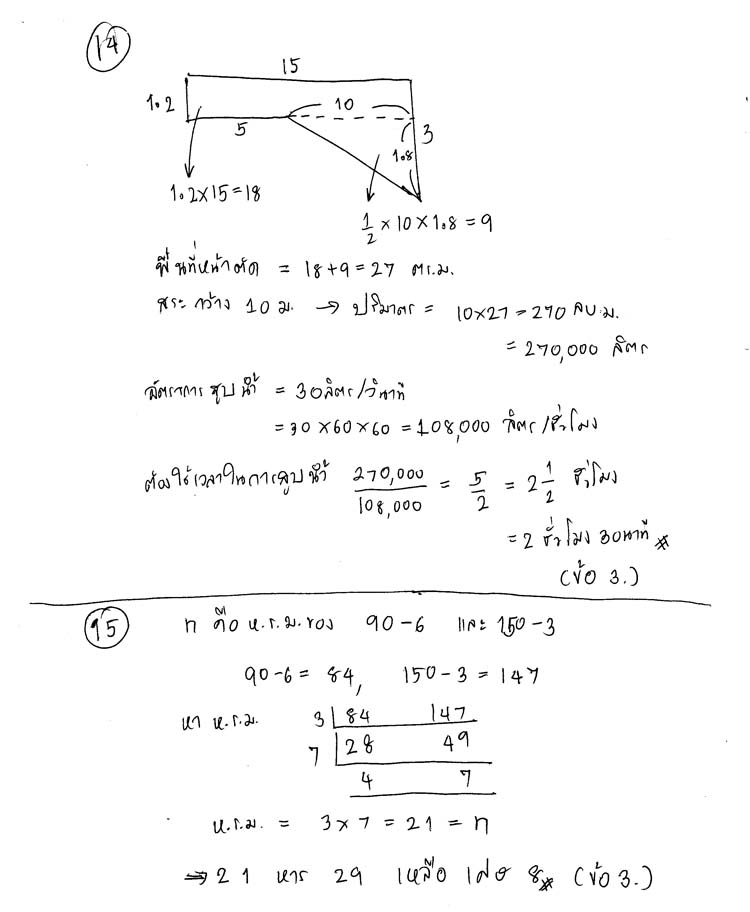 14
15
1.2
10
5
3
1.8
1.2×15=18
1/2 × 10 × 1.8 = 9
พื้นที่หน้าตัด = 18+9 = 27 ตร.ม.
สระกว้าง 10 ม. → ปริมาตร = 10×27 = 270 ลบ.ม.
= 270,000 ลิตร
อัตราการสูบน้ำ = 30 ลิตร/วินาที
= 30 × 60 × 60 = 108,000 ลิตร/ชั่วโมง
ต้องใช้เวลาในการสูบน้ำ 270,000/108,000 = 5/2 = 2 1/2 ชั่วโมง
= 2 ชั่วโมง 30 นาที *
(ข้อ 3.)
15 n คือ ห.ร.ม. ของ 90-6 และ 150-3
90-6 = 84, 150-3 = 147
หา ห.ร.ม. 3 84 147
7 28 49
4 7
ห.ร.ม. = 3×7 = 21 = n
⇒ 21 หาร 29 เหลือเศษ 8 * (ข้อ 3.)